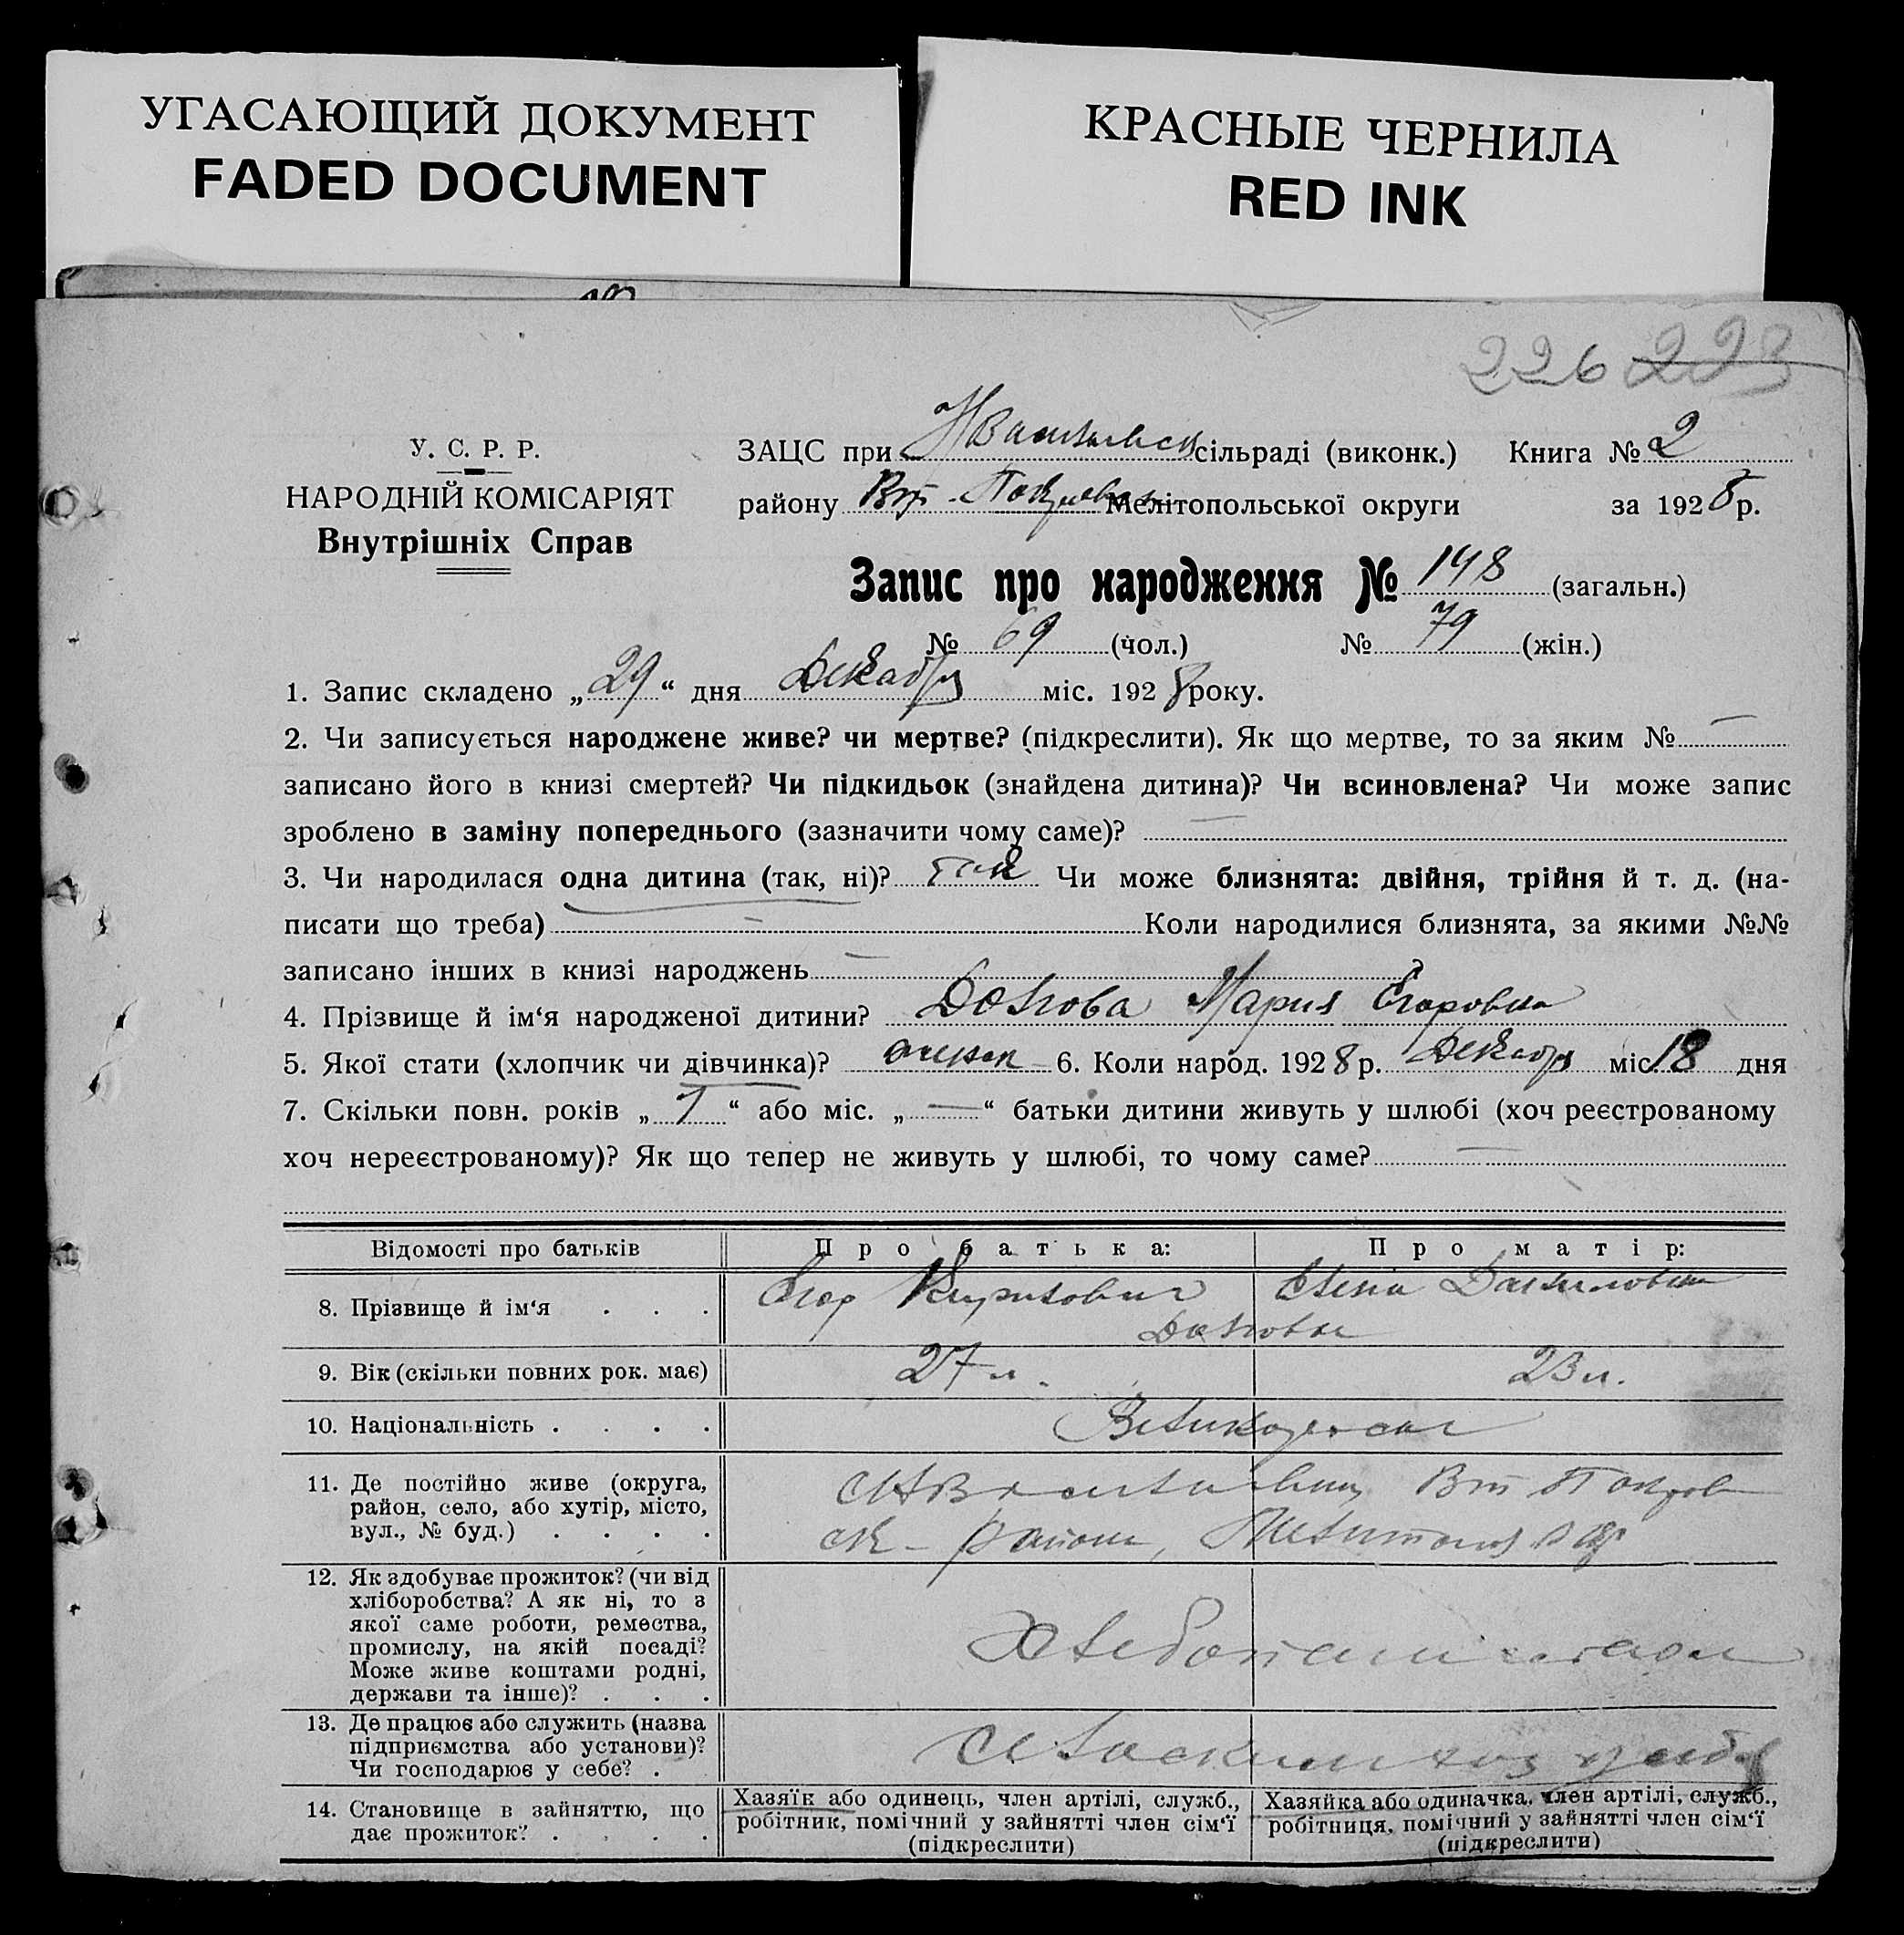 УГАСАЮЩИЙ ДОКУМЕНТ
FADED DOCUMENT
КРАСНЫЕ ЧЕРНИЛА
RED INK
226 223
У. С. Р. Р.
НАРОДНІЙ КОМІСАРІЯТ
Внутрішніх Справ
ЗАЦС при НВасильевск сільраді (виконк.) Книга № 2
району Вт-Покровск Мелітопольської округи за 1928 р.
Запис про народження № 148 (загальн.)
№ 69 (чол.) № 79 (жін.)
1. Запис складено „29“ дня Декабря міс. 1928 року.
2. Чи записується народжене живе? чи мертве? (підкреслити). Як що мертве, то за яким № —
записано його в книзі смертей? Чи підкидьок (знайдена дитина)? Чи всиновлена? Чи може запис
зроблено в заміну попереднього (зазначити чому саме)? —
3. Чи народилася одна дитина (так, ні)? так Чи може близнята: двійня, трійня й т. д. (на-
писати що треба) — Коли народилися близнята, за якими №№
записано інших в книзі народжень — ?
4. Прізвище й ім‘я народженої дитини? Мария Егоровна
5. Якої стати (хлопчик чи дівчинка)? 6. Коли народ. 1928 р. Декабря міс. 18 дня
7. Скільки повн. років „7“ або міс. „—“ батьки дитини живуть у шлюбі (хоч реєстрованому
хоч нереєстрованому)? Як що тепер не живуть у шлюбі, то чому саме? —
Відомості про батьків Про батька: Про матір:
8. Прізвище й ім‘я . . . Егор Кирилович Елена Даниловна
9. Вік (скільки повних рок. має) 27 л. 23 л.
10. Національність . . . . Великорос
11. Де постійно живе (округа,
район, село, або хутір, місто,
вул., № буд.) . . . .
Вт Покров
ск- района, Мелитоп окр
12. Як здобуває прожиток? (чи від
хліборобства? А як ні, то з
якої саме роботи, ремества,
промислу, на якій посаді?
Може живе коштами родні,
держави та інше)? . . .
13. Де працює або служить (назва
підприємства або установи)?
Чи господарює у себе? .
14. Становище в зайняттю, що
дає прожиток? . . . .
Хазяїн або одинець, член артілі, служб.,
робітник, помічний у зайнятті член сім‘ї
(підкреслити)
Хазяйка або одиначка, член артілі, служб.,
робітниця, помічний у зайнятті член сім‘ї
(підкреслити)